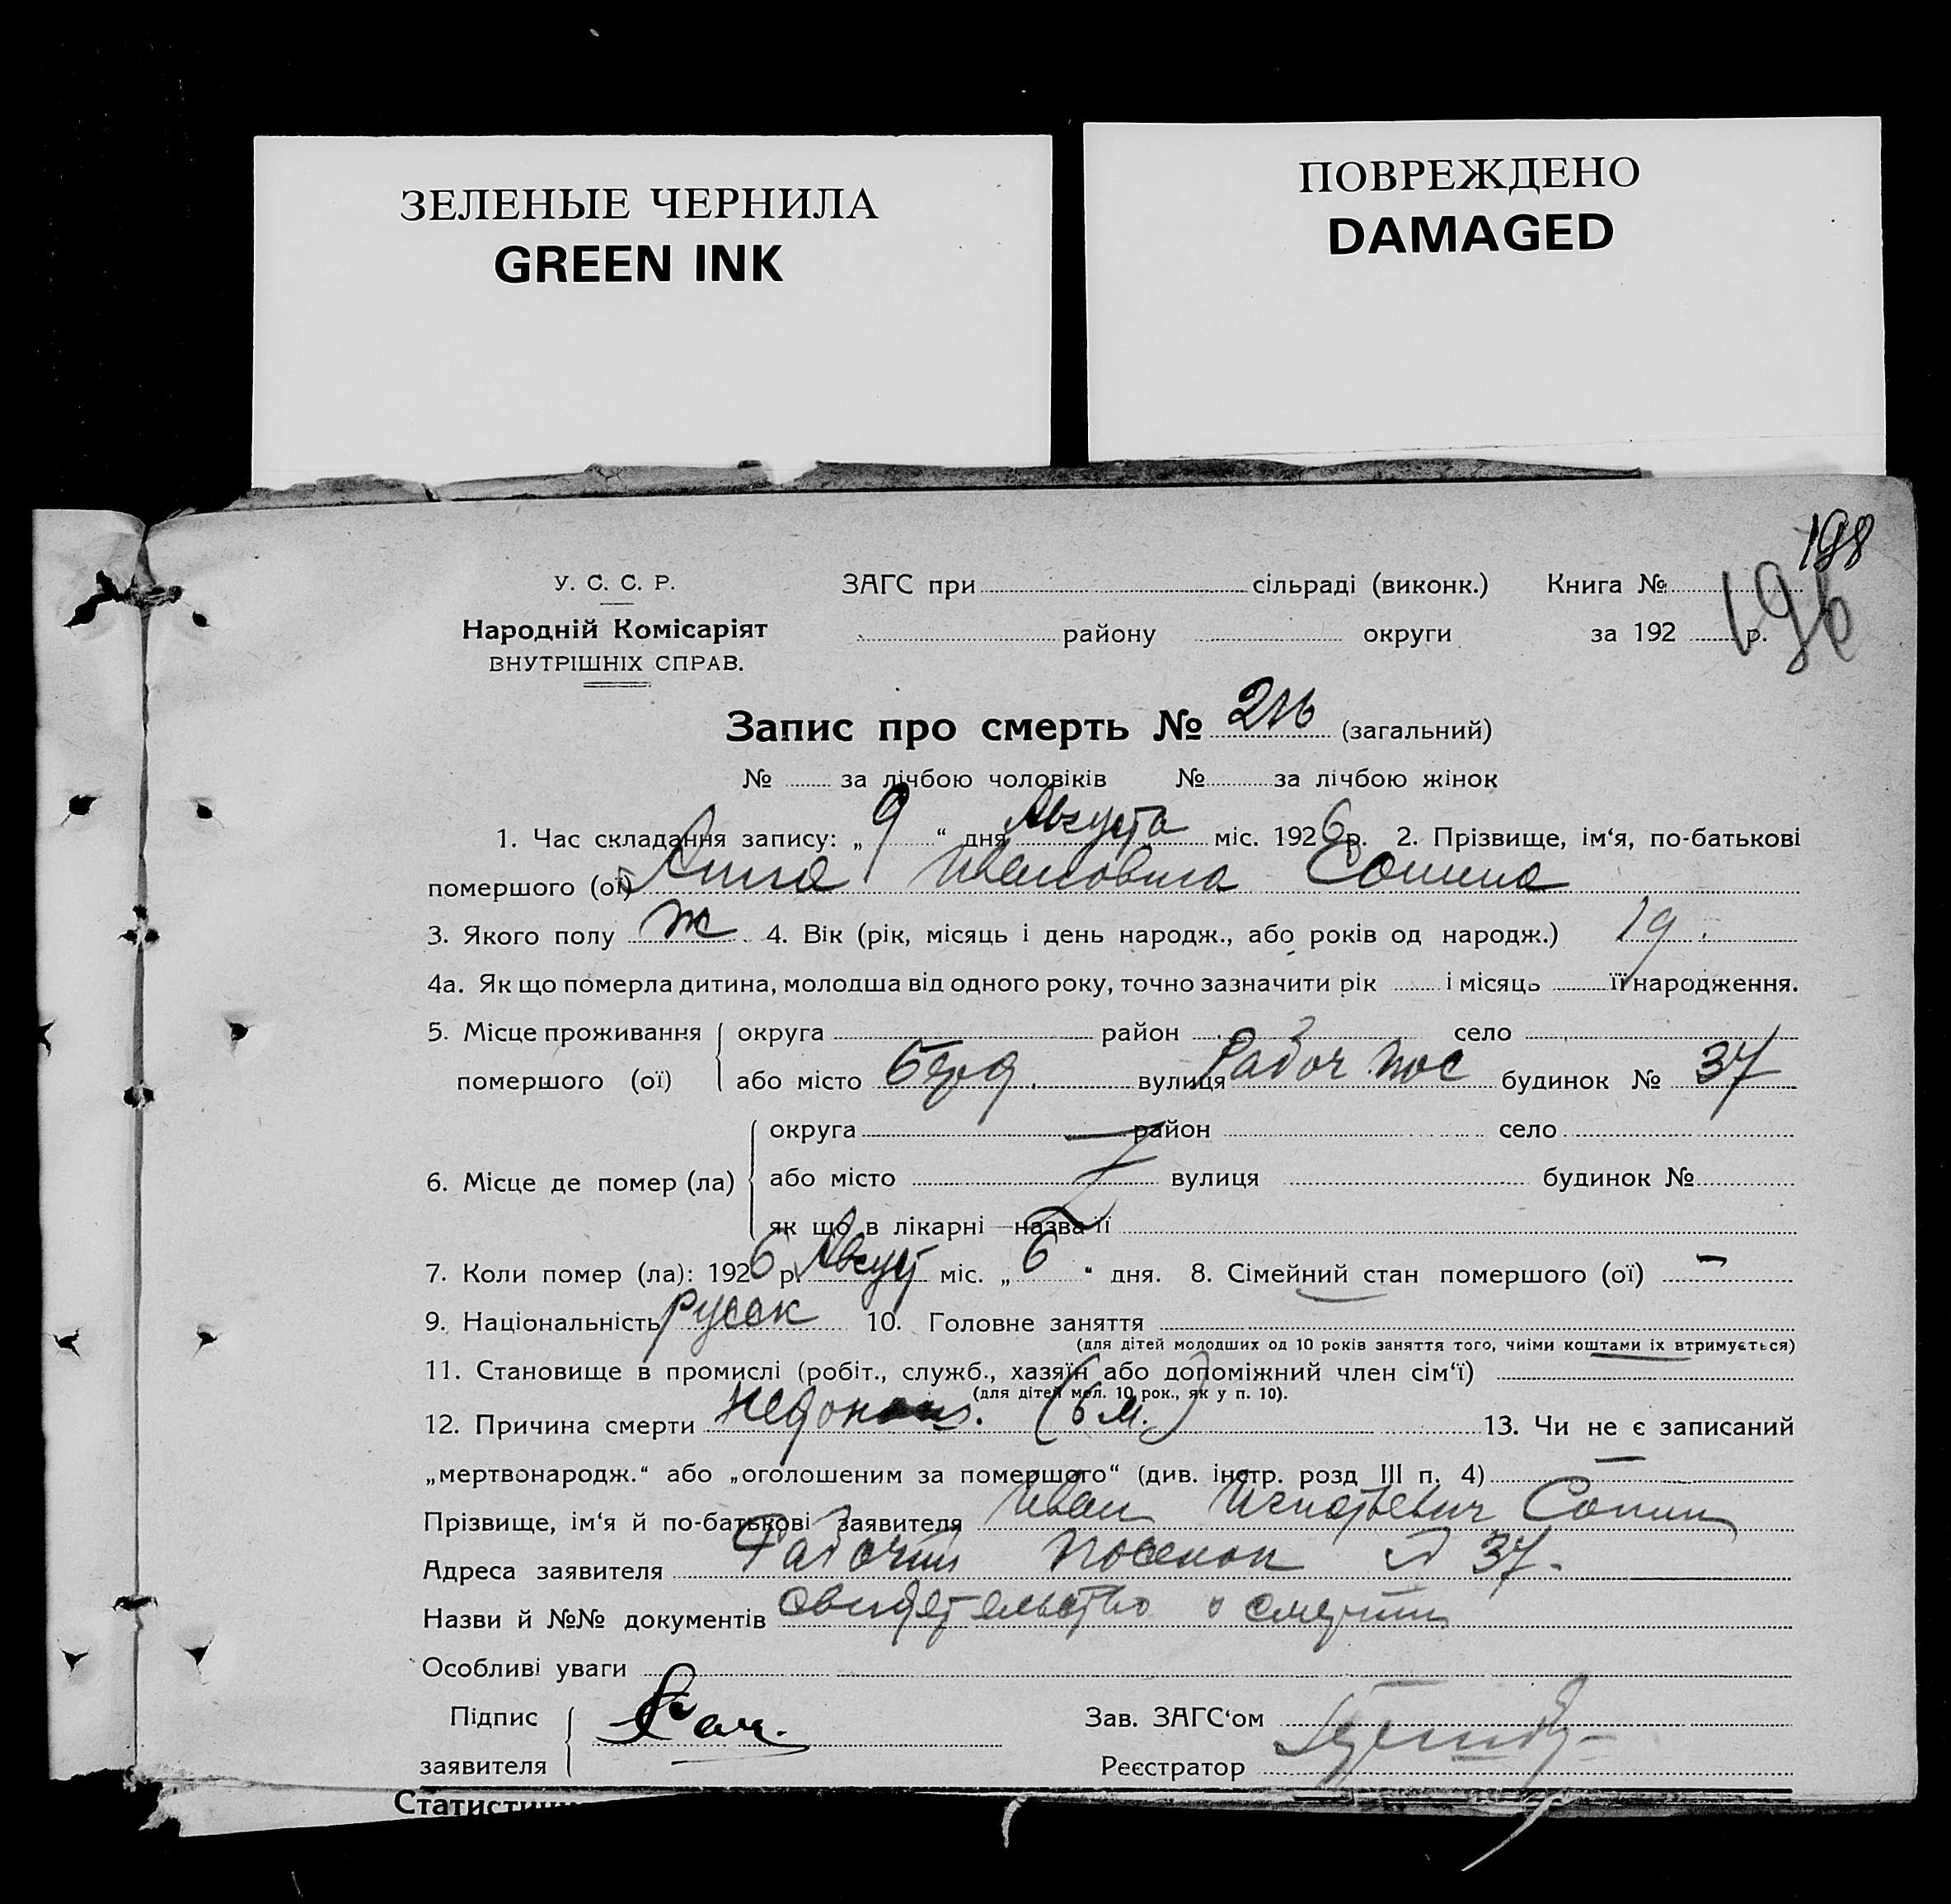 ЗЕЛЕНЫЕ ЧЕРНИЛА
GREEN INK
ПОВРЕЖДЕНО
DAMAGED
198
196
У. С. С. Р.
ЗАГС при сільраді (виконк.) Книга №
Народній Комісаріят
району округи за 192 р.
ВНУТРІШНІХ СПРАВ.
Запис про смерть № 216 (загальний)
№ за лічбою чоловіків № за лічбою жінок
1. Час складання запису: „9“ дня Августа міс. 1926 р. 2. Прізвище, ім‘я, по-батькові
помершого (ої) Анна Ивановна Сонина
3. Якого полу ж 4. Вік (рік, місяць і день народж., або років од народж.) 1 д.
4а. Як що померла дитина, молодша від одного року, точно зазначити рік і місяць її народження.
5. Місце проживання округа район село
помершого (ої) або місто Берд. вулиця Рабоч пос будинок № 37
округа район село
6. Місце де помер (ла) або місто вулиця будинок №
як що в лікарні — назва її
7. Коли помер (ла): 1926 р. Август міс. „6“ дня. 8. Сімейний стан помершого (ої) —
9. Національність русск 10. Головне заняття
(для дітей молодших од 10 років заняття того, чиїми коштами їх втримується)
11. Становище в промислі (робіт., служб., хазяїн або допоміжний член сім‘ї)
(для дітей мол. 10 рок., як у п. 10).
12. Причина смерти недонош. (6 м.) 13. Чи не є записаний
„мертвонародж.“ або „оголошеним за помершого“ (див. інстр. розд III п. 4) —
Прізвище, ім‘я й по-батькові заявителя Иван Игнатьевич Сонин
Адреса заявителя Рабочий поселок д 37.
Назви й №№ документів свидетельство о смерти
Особливі уваги
Підпис
заявителя
Зав. ЗАГС‘ом
Реєстратор